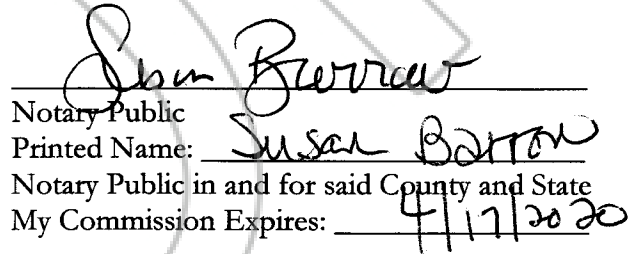 Susan Barron
Notary Public
Printed Name: Susan Barron
Notary Public in and for said County and State
My Commission Expires: 4/17/2020